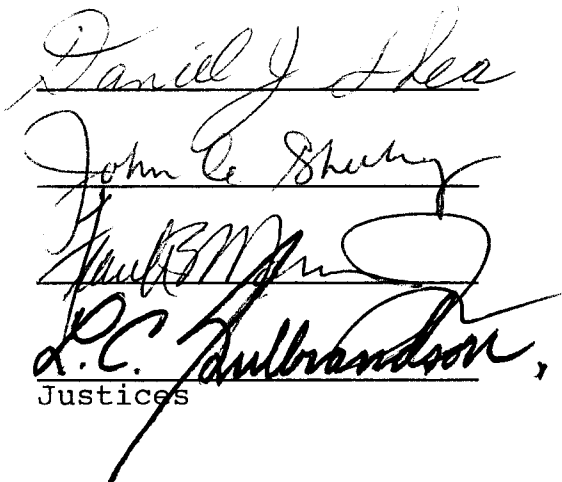 Daniel J. Shea
John C. Sheehy
Frank B. Morrison
L.C. Gulbrandson,
Justices